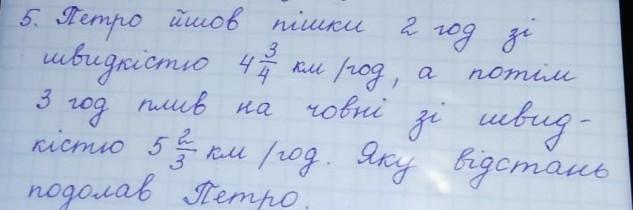 5. Петро йшов пішки 2 год зі
швидкістю 4 3/4 км/год, а потім
3 год плив на човні зі швид-
кістю 5 2/3 км/год. Яку відстань
подолав Петро.